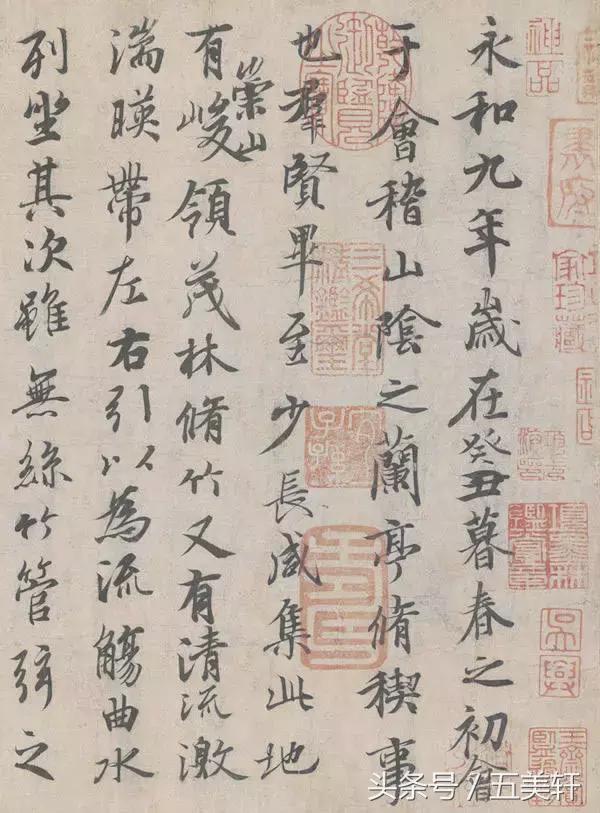 永和九年歲在癸丑暮春之初會
于會稽山陰之蘭亭脩稧事
也羣賢畢至少長咸集此地
有崇山峻領茂林脩竹又有清流激
湍暎帶左右引以為流觴曲水
列坐其次雖無絲竹管弦之
神品
三希堂精鑑璽
宜子孫
吳興
头条号 / 五美轩